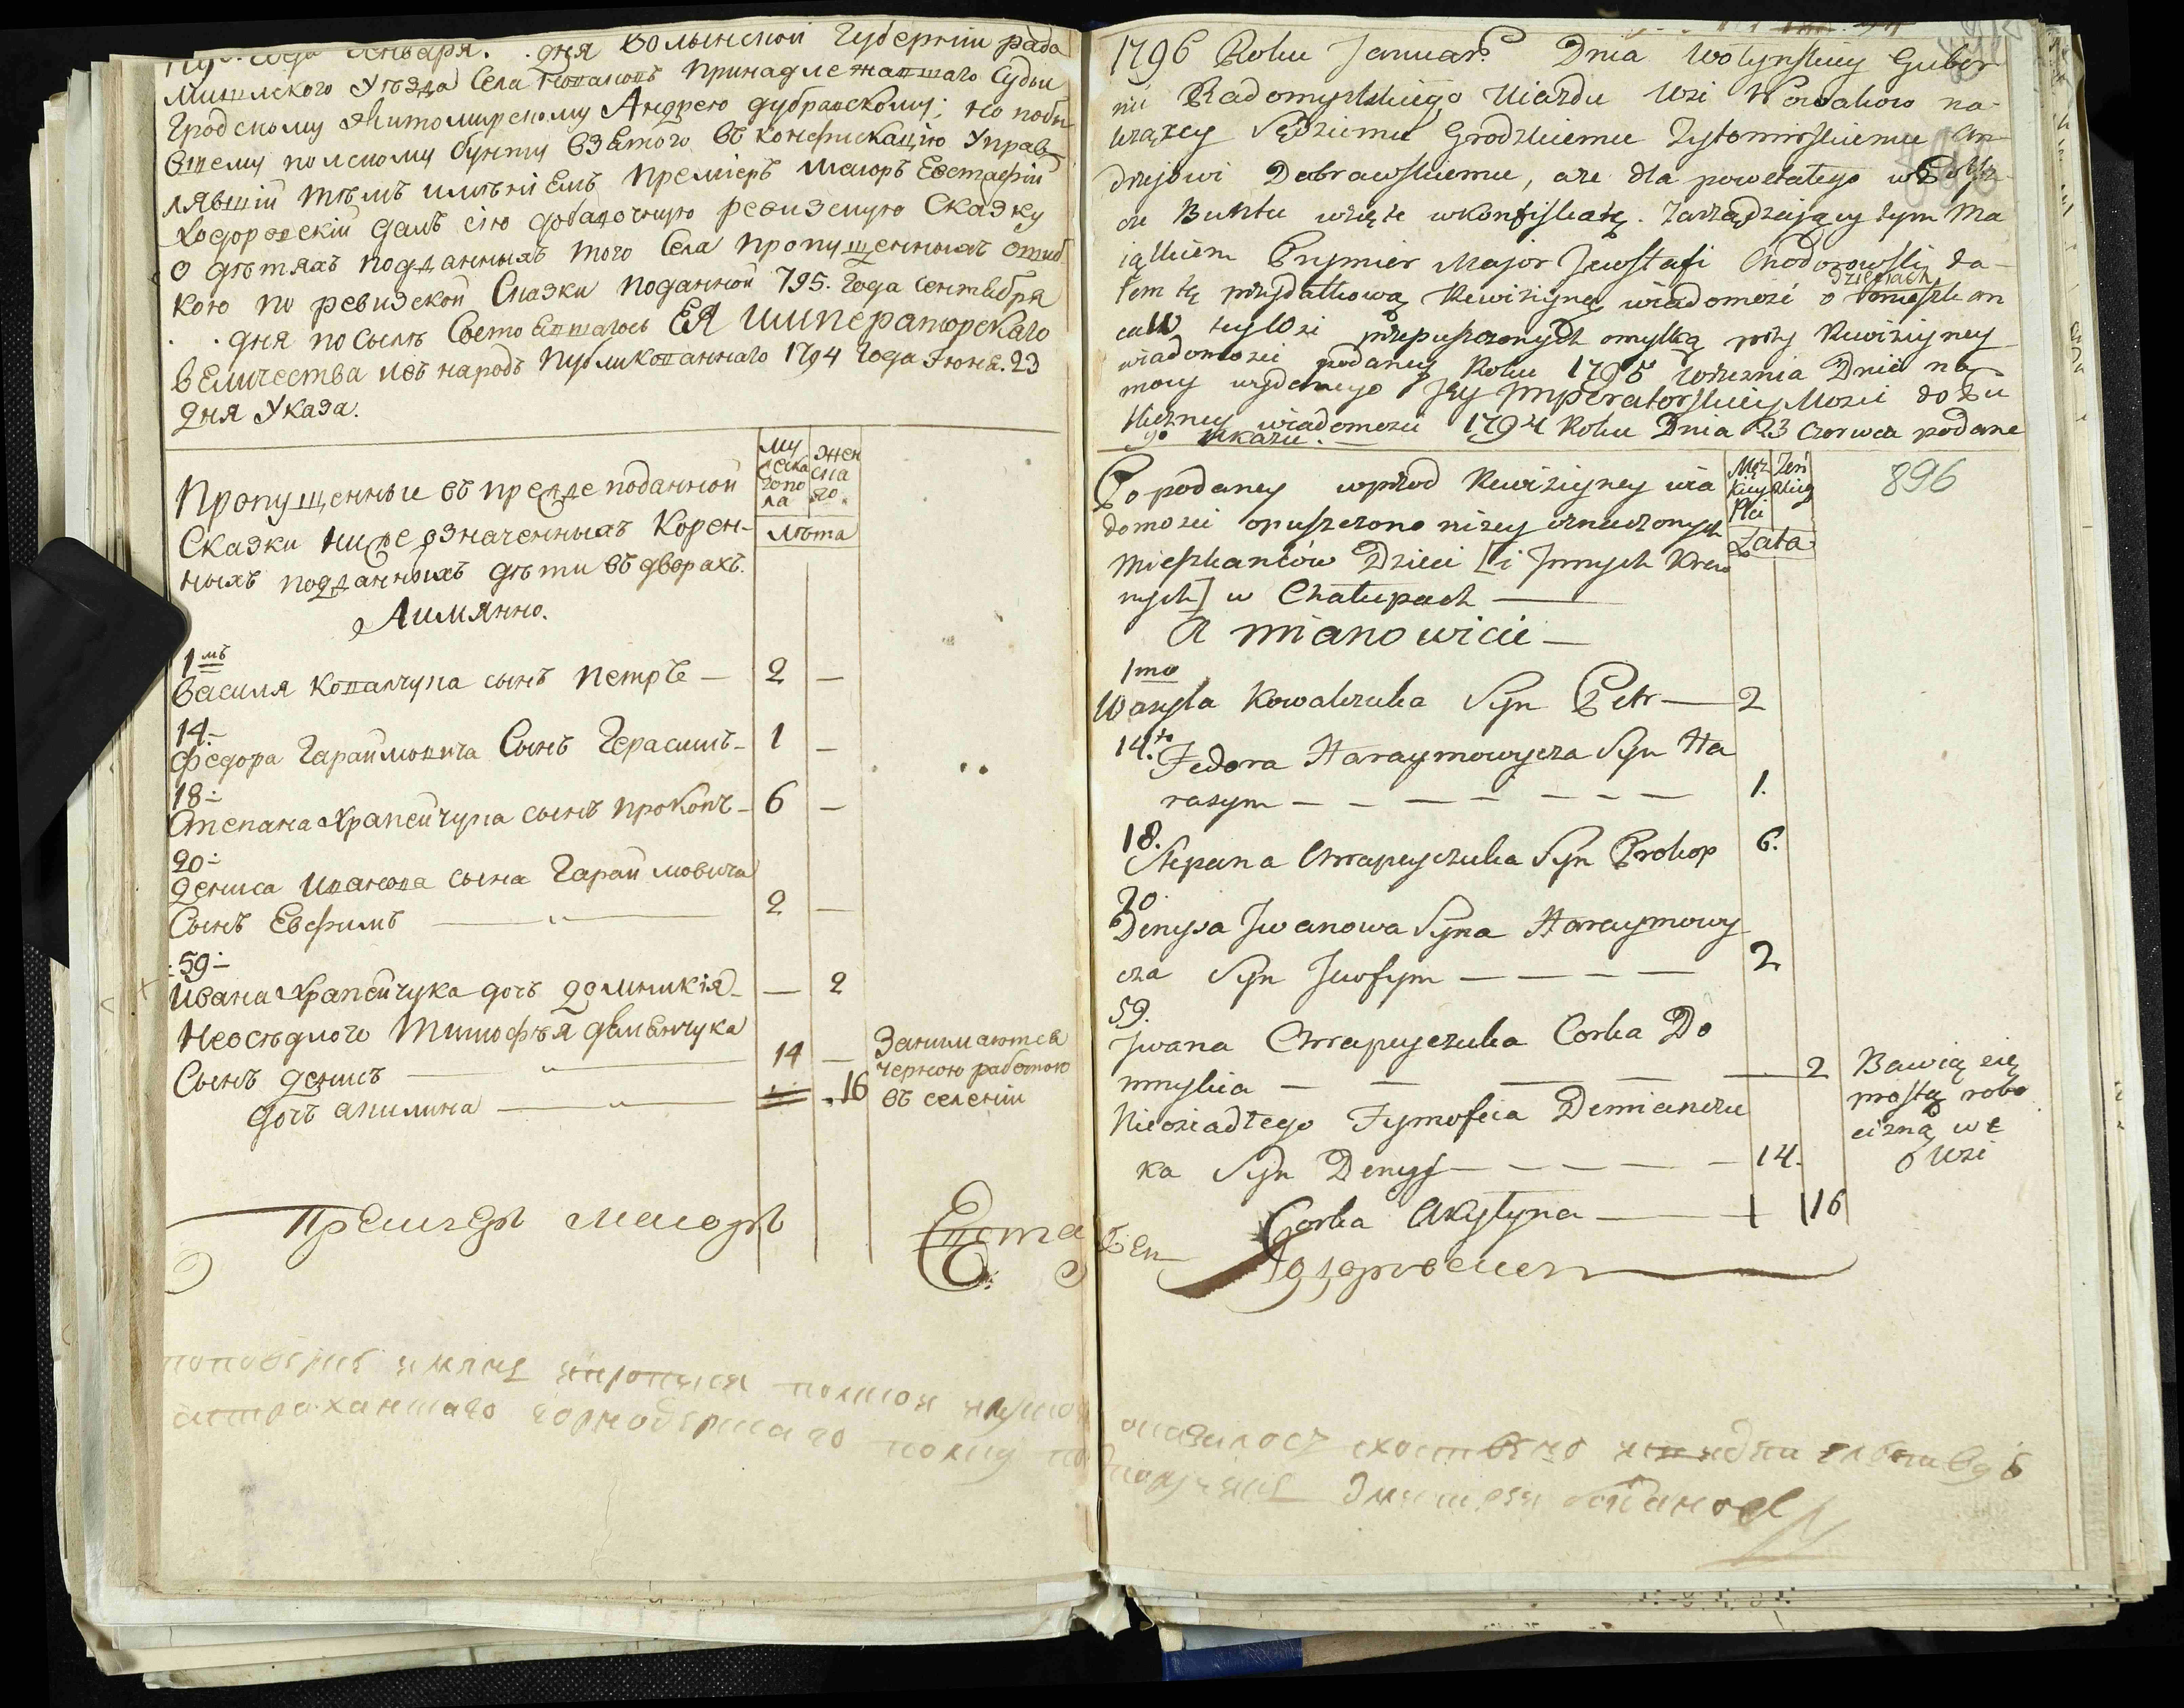 Января. дня Волынской Губерніи радо
мишлского Уѣзда Села Ковалювъ принадлежавшаго Судьи
Гродскому Житомирскому Андрею дубравскому; но побы
вшему полскому бунту взЕтого въ конфискацію Управ
лявшій тѣмъ имѣніЕмъ премІеръ маиоръ Евстафій
Ходоровскій далъ сію добавочную ревизскую Сказку
О дѣтяхъ подданныхъ того Села пропущенныхъ ошиб
кою по ревизской Сказки поданной 795. Года сентября
дня по силѣ Состоявшагось ЕЯ ИмпЕраторскаго
вЕличества изъ народъ Публикованнаго 1794 Года Июня. 23
Дня Указа.
Пропущенные въ прежде поданной
Сказки ниже означенныхъ Корен-
ныхъ подданныхъ дѣти въ дворахъ.
Аимянно.
Му
жеска
гопо
ла
Жен
ска
го.
лѣта
1мъ
Василя Ковалчука сынъ Петръ — 2 —
14.-
Федора Гараймовича Сынъ Герасимъ- 1 —
18-
Степана Храпейчука сынъ прокопъ- 6 —
20-
Дениса Иванова сына Гараймовича
Сынъ Евфимъ — 2 —
59-
Ивана Храпейчука дочъ доминикія — 2
Неосѣдлого Тимофѣя дѣмЕнчука
Сынъ денисъ — 14 —
дочъ акилина — 16
Занимаются
черною работою
въ селеніи
Премиеръ маиоръ Евста
1796 Roku Januar. Dnia Wołynskiey Guber
nii Radomyslskiego Uiazdu Wsi Kowalow na-
leżącey Sędziemu Grodzkiemu Żytomirskiemu An
drzejowi Dobrawskiemu, ale dla powstałego w Polsz-
cze Buntu wzięte w Konfiskatę. Zarządzający tym Ma
iątkiem Prymier Major Jewstafi Chodorowski da-
łem tę przydatkową Rewizyyną wiadomość o dzieciach mieszkan
ców tey Wsi przepuszczonych omyłką przy Rewizyiney
wiadomosci podaney Roku 1795 Września Dnia na
mocy wydanego Jey Imperatorskiey Mości do Pu
bliczney wiadomosci 1794 Roku Dnia 23 Czerwca podane
go Ukazu. —
Po podaney wprzod Rewizyiney wia
domosci opuszczono niżey oznaczonych
Mieszkańców Dzieci [i Innych Krew
nych] w Chałupach —
A mianowicie —
Męz
kiey
Płci
Zeń
skiey
Lata
896
1mo
Wasyla Kowalczuka Syn Petr — 2
14.to Fedora Haraymowycza Syn Ha
rasym — 1.
18.
Stepana Chrapeyczuka Syn Prokop 6.
20.
Denysa Iwanowa Syna Haraymowy
cza Syn Jewfym — 2
59.
Iwana Chrapeyczuka Corka Do
mnykia — 2
Nieosiadłego Tymofeia Demianczu
ka Syn Denys — 14.
Corka Akylyna — 16
Bawią się
prostą robo
cizną we
Wsi
Ходоровский